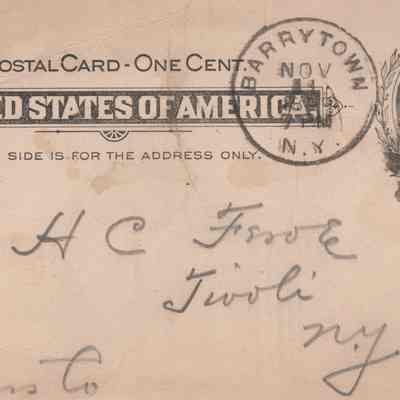 POSTAL CARD - ONE CENT.
ED STATES OF AMERICA.
SIDE IS FOR THE ADDRESS ONLY.
BARRYTOWN
NOV
N.Y.
H C
Tivoli
N.Y.
Co